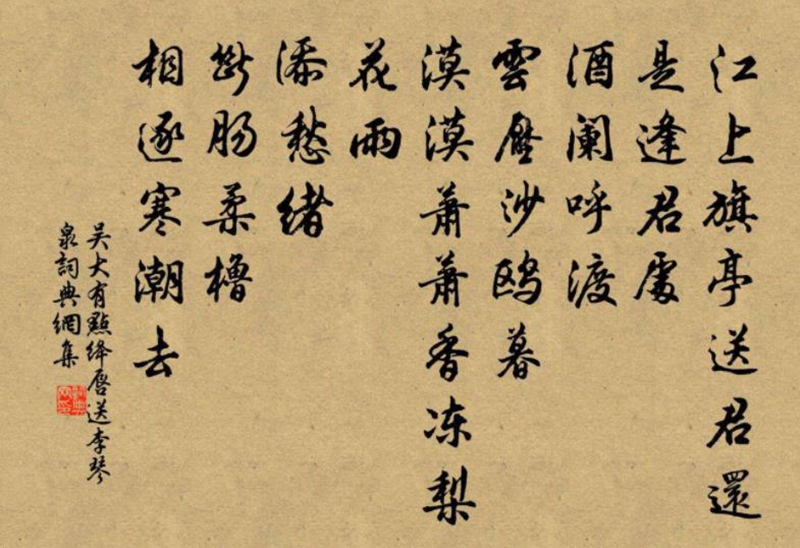 江上旗亭送君還
是逢君處
酒闌呼渡
雲壓沙鷗暮
漠漠蕭蕭香凍梨
花雨
添愁緒
斷腸柔櫓
相逐寒潮去
吳大有點絳唇送李琴
泉詞典網集